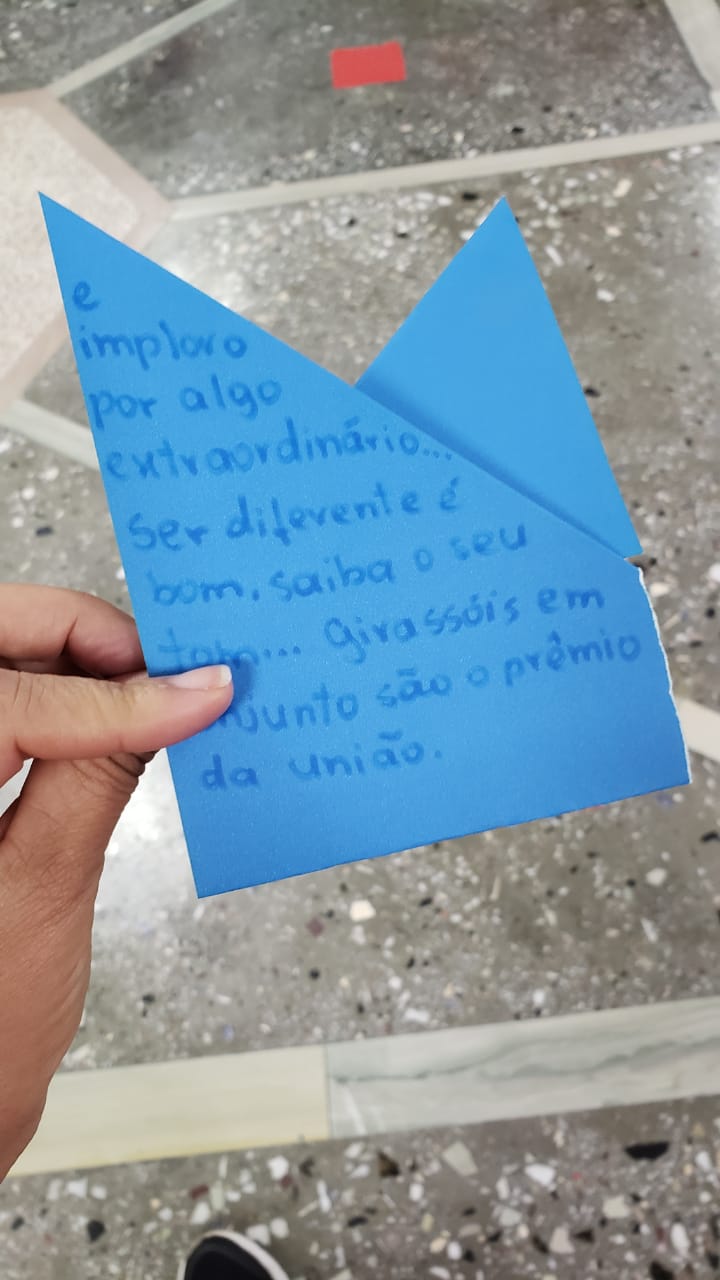 e
imploro
por algo
extraordinário...
ser diferente é
bom. saiba o seu
tom... girassóis em
são o prêmio
da união.